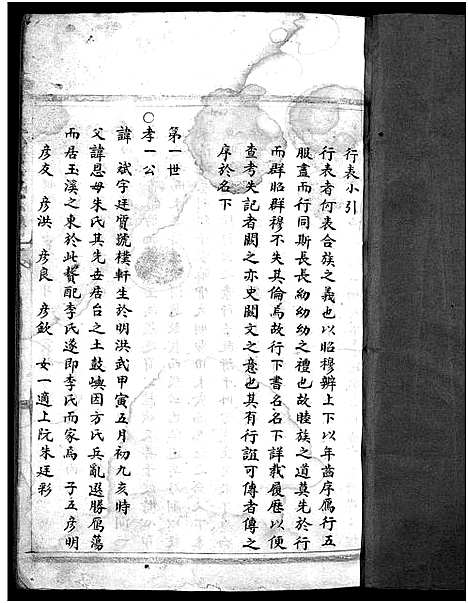 行表小引
行表者何表合族之義也以昭穆辨上下以年齒序鴈行五
服盡而行同斯長長幼幼之禮也故睦族之道莫先於行
而群昭群穆不失其倫焉故行下書名名下詳載履歷以便
查考失記者闕之亦史闕文之意也其有行誼可傳者傳之
序於名下
第一世
○孝一公
諱斌字廷質號樸軒生於明洪武甲寅五月初九亥時
父諱恩母朱氏其先世居台之土鼓嶼因方氏兵亂遯勝鴈蕩
而居玉溪之東於此贅配李氏遂即李氏而家焉 子五彥明
彥友 彥洪 彥良 彥欽 女一適上阮朱廷彩